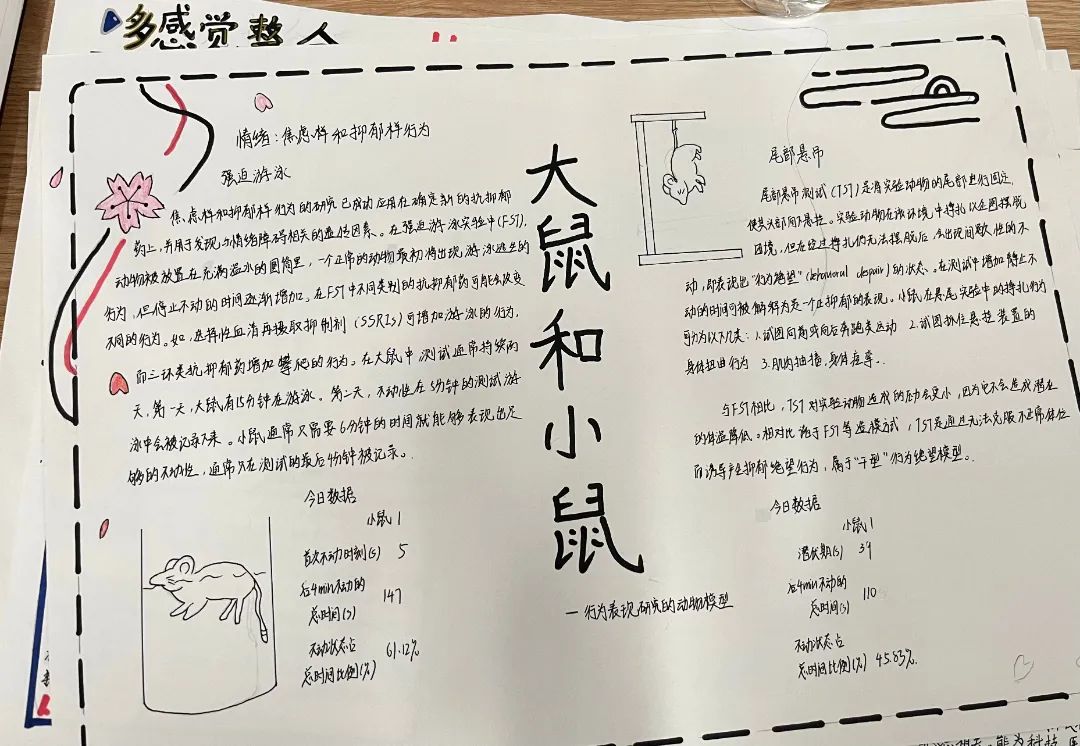 多感觉整合
情绪：焦虑样和抑郁样行为
强迫游泳
焦虑样和抑郁样行为的研究已成功应用在确定新的抗抑郁
药上，并用于发现与情绪障碍相关的遗传因素。在强迫游泳实验中(FST)，
动物被放置在充满温水的圆筒里，一个正常的动物最初将出现游泳逃生的
行为，但停止不动的时间逐渐增加。在FST中不同类别的抗抑郁药可能会改变
不同的行为。如，选择性血清再摄取抑制剂（SSRIs）可增加游泳的行为，
而三环类抗抑郁药增加攀爬的行为。在大鼠中，测试通常持续两
天，第一天，大鼠有15分钟在游泳。第二天，不动性在5分钟的测试游
泳中会被记录下来。小鼠通常只需要6分钟的时间就能够表现出足
够的不动性，通常只在测试的最后4分钟被记录。
今日数据
小鼠1
首次不动时刻(s) 5
后4min不动的
总时间(s) 147
不动状态占
总时间比例(%) 61.12%
大鼠和小鼠
—行为表现研究的动物模型
尾部悬吊
尾部悬吊测试(TST)是将实验动物的尾部进行固定，
使其头部向下悬挂。实验动物在该环境中挣扎以企图摆脱
困境，但在经过挣扎仍无法摆脱后，会出现间歇性的不
动，即表现出“行为绝望”(behavioral despair)的状态。在测试中增加静止不
动的时间可被解释为是一个正抑郁的表现。小鼠在悬尾实验中的挣扎行为
可分为以下几类：1.试图向各方向后奔跑类运动 2.试图抓住悬挂装置的
身体扭曲行为 3.肌肉抽搐，身体在等..
与FST相比，TST对实验动物造成的应力会更小，因为它不会造成潜在
的体温降低。相对比于FST等造模方式，TST是通过无法克服不正常体位
而诱导产生抑郁绝望行为，属于“干型”行为绝望模型。
今日数据
小鼠1
潜伏期(s) 34
后4min不动的
总时间(s) 110
不动状态占
总时间比例(%) 45.83%